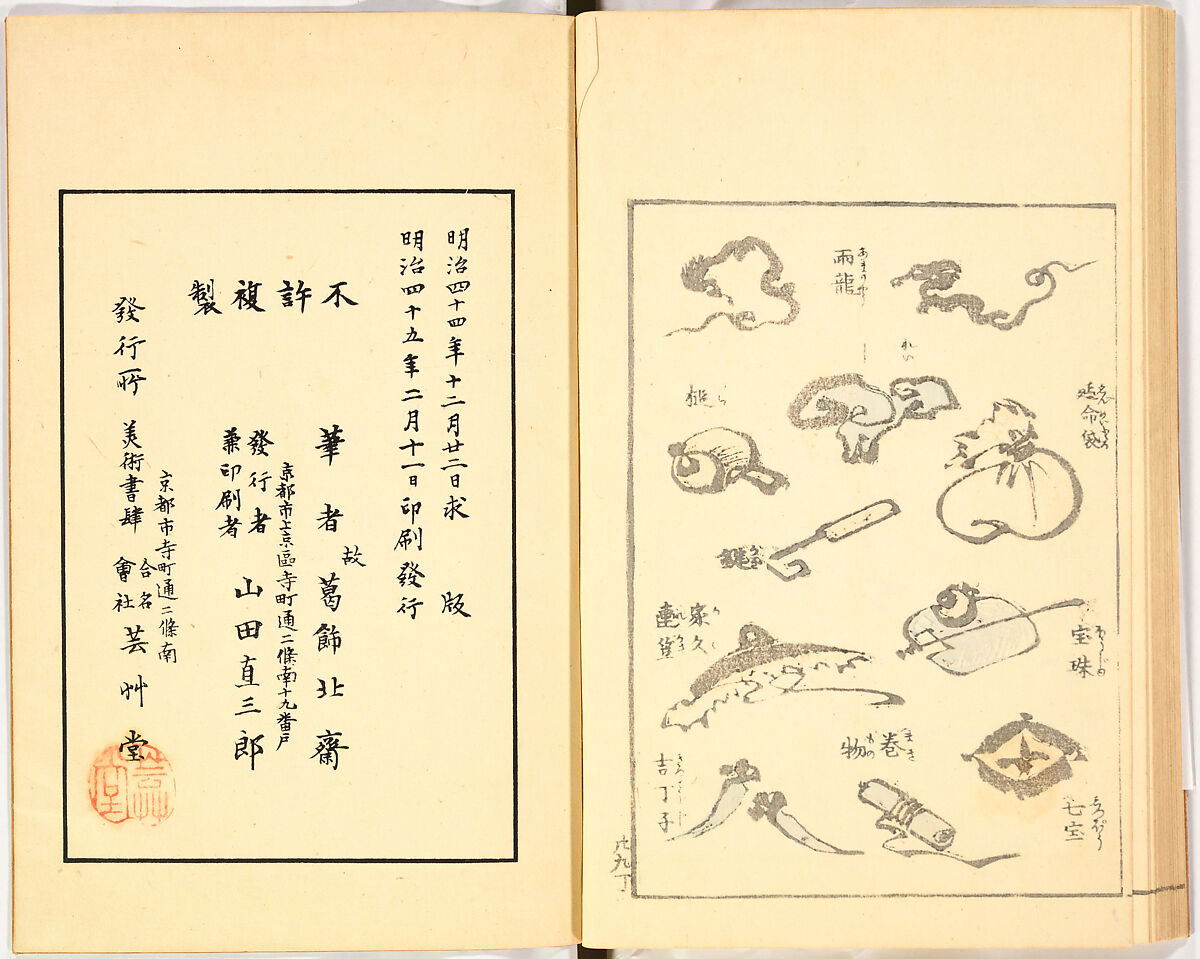 雨龍
あまりやう
れい
槌
つち
延命袋
鍵
家久連簑
宝珠
ほうじゆ
巻物
まきもの
七宝
しつぽう
吉丁子
廿九丁
明治四十四年十二月廿二日求版
明治四十五年二月十一日印刷發行
不許複製
筆者 故 葛飾北齋
京都市上京區寺町通二條南十九番戸
發行者
兼印刷者
山田直三郎
京都市寺町通二條南
發行所 美術書肆 合名會社 芸艸堂
芸艸堂